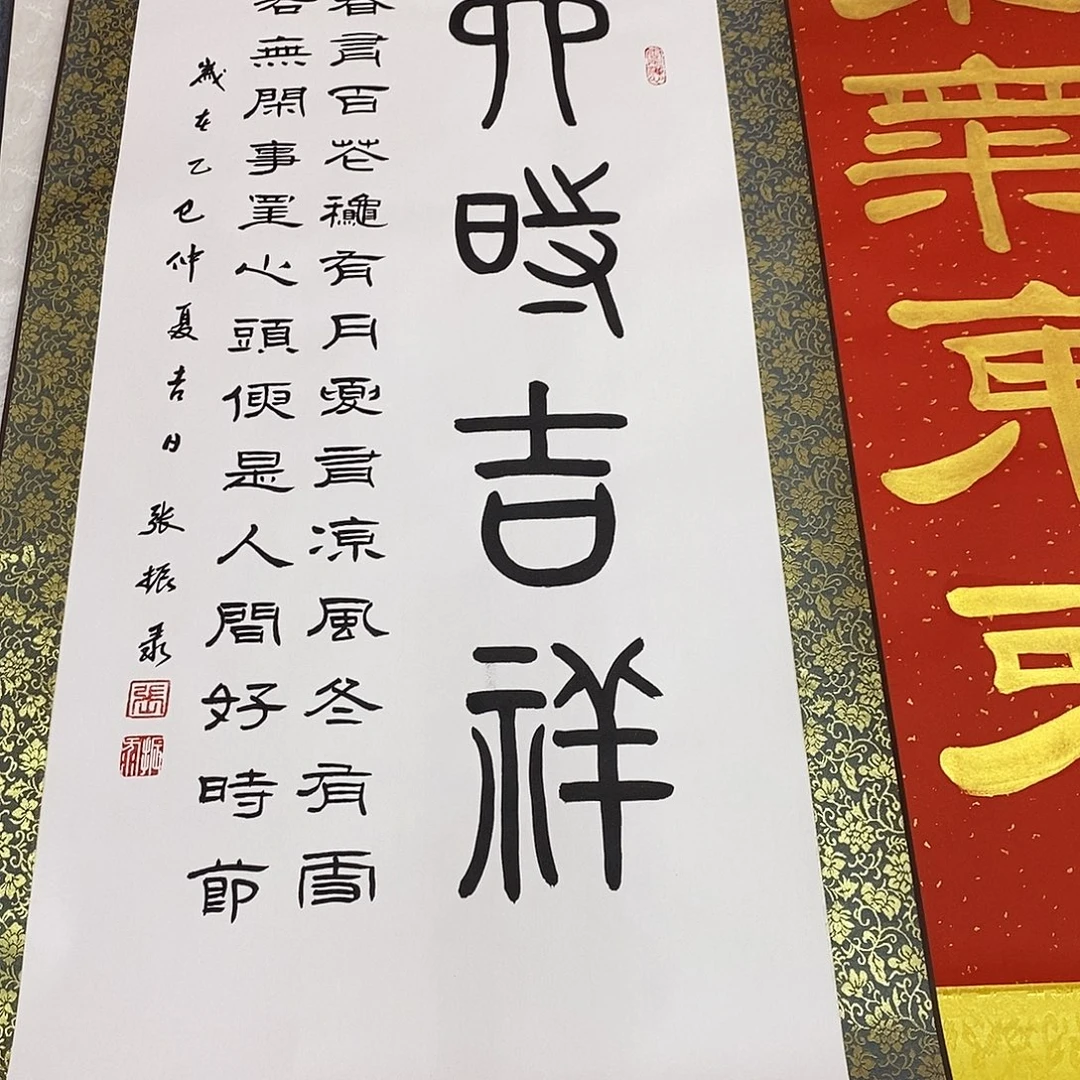 四時吉祥
春有百花穐有月夏有凉風冬有雪
若無閑事罣心頭便是人間好時節
歲在乙巳仲夏吉日
张振录
張